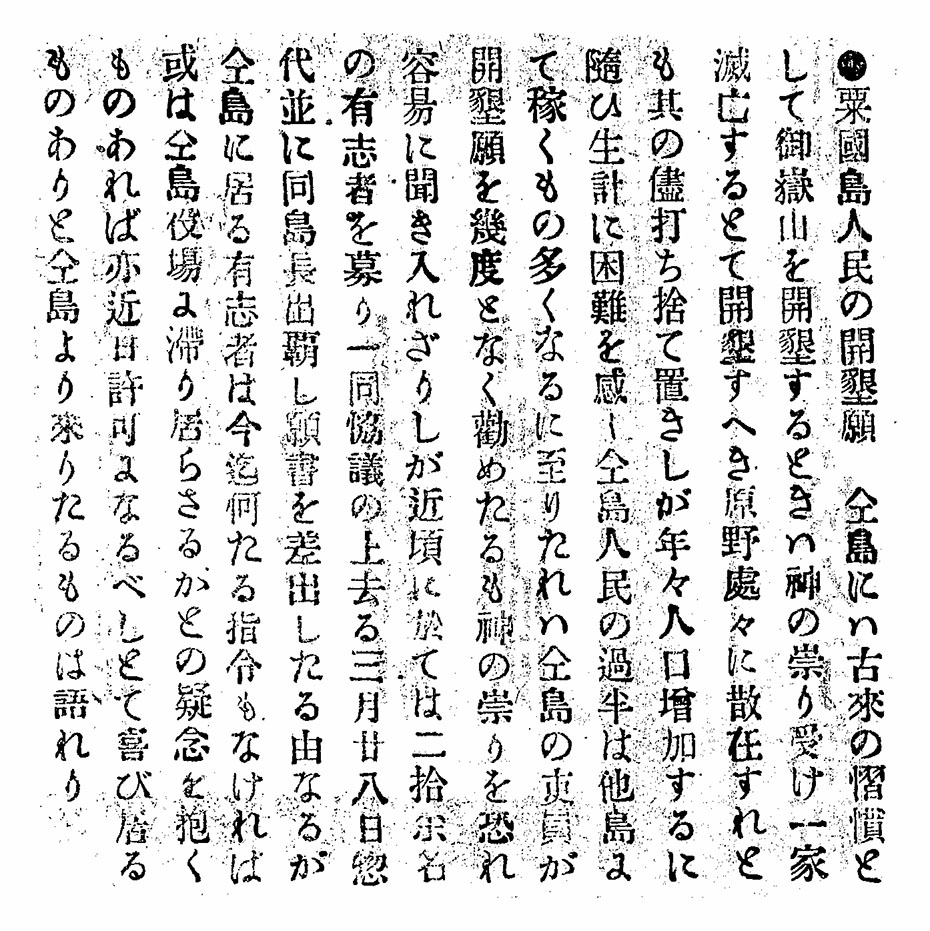 ●粟國島人民の開墾願　仝島にハ古來の慴慣と
して御嶽山を開墾するときハ神の祟り受け一家
滅亡するとて開墾すへき原野處々に散在すれと
も其の儘打ち捨て置きしが年々人口増加するに
隨ひ生計に困難を感し仝島人民の過半は他島よ
て稼くもの多くなるに至りたれハ仝島の吏員が
開墾願を幾度となく勸めたるも神の祟りを恐れ
容易に聞き入れざりしが近頃に於ては二拾余名
の有志者を募り一同恊議の上去る三月廿八日惣
代並に同島長出覇し願書を差出したる由なるが
仝島に居る有志者は今迄何たる指令もなければ
或は仝島役場よ滯り居らさるかとの疑念を抱く
ものあれば亦近日許可よなるべしとて喜び居る
ものありと仝島より來りたるものは語れり